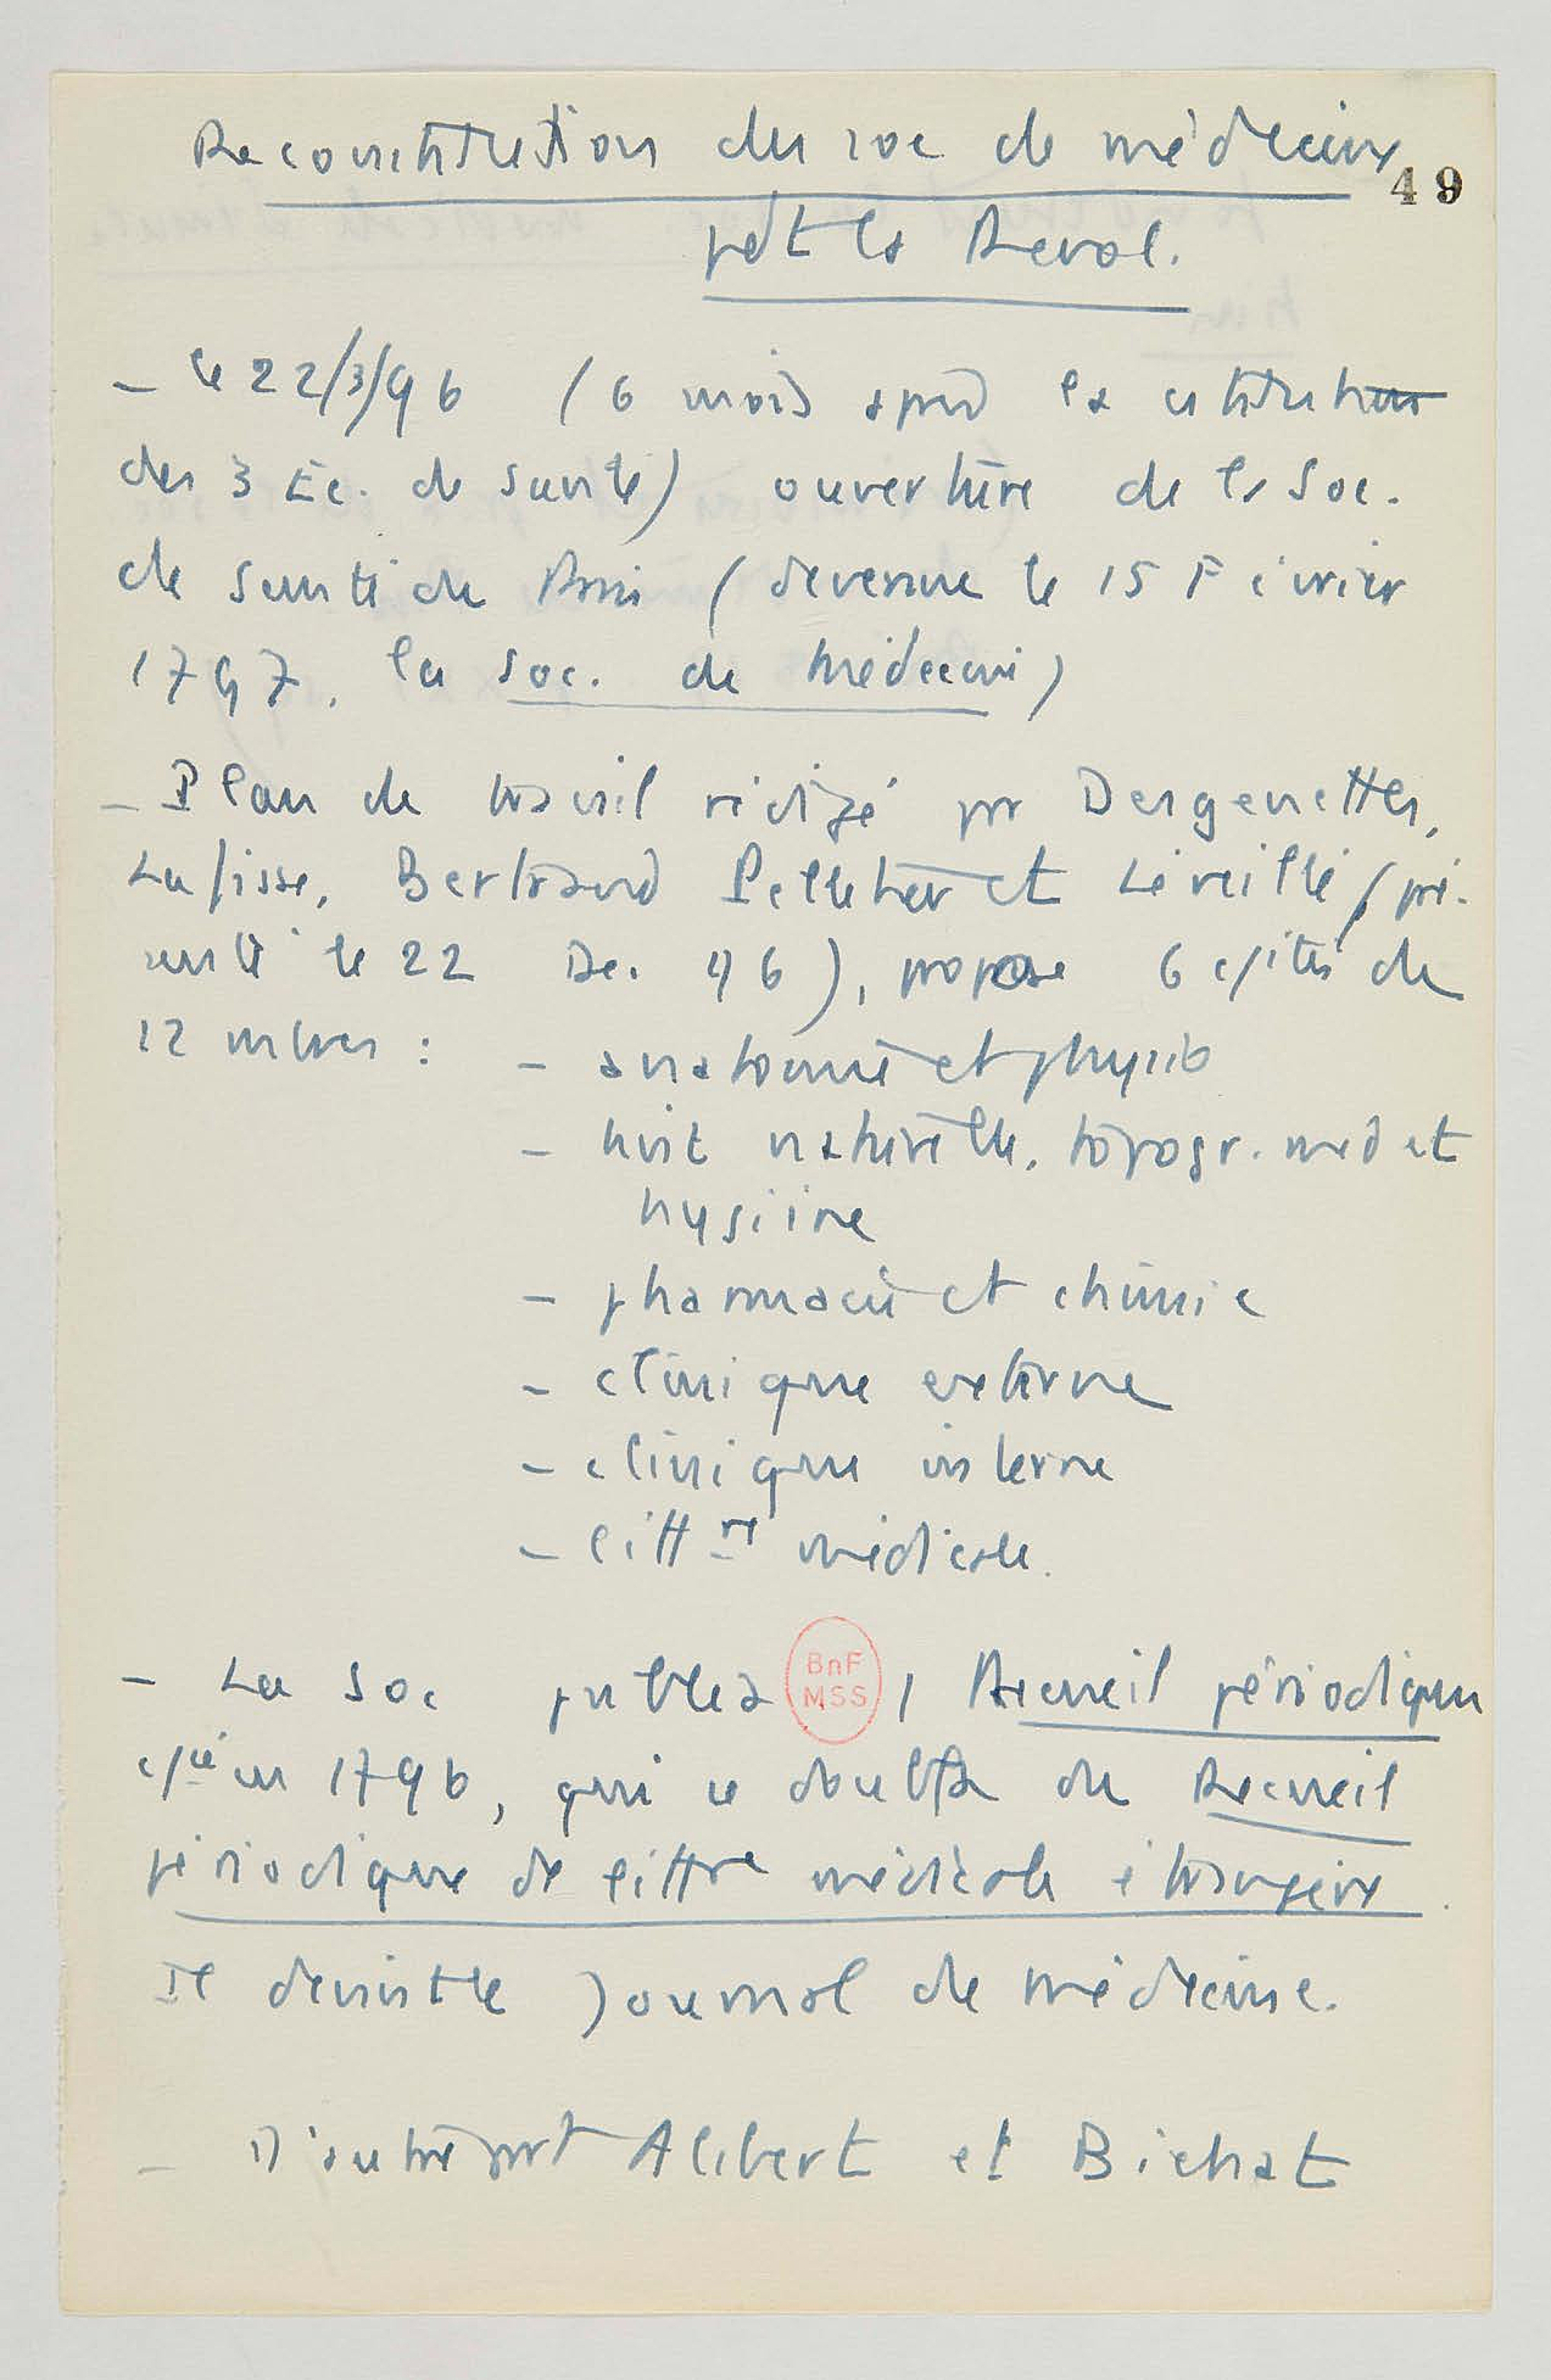 Reconstitution des soc de médecine
49
pdt la Revol.
- le 22/3/96 (6 mois après la cstitution
des 3 Ec. de Santé) ouverture de la Soc.
de Santé de Paris (devenue le 15 Février
1797, la Soc. de Médecine)
- Plan de travail rédigé par Desgenettes,
Lafisse, Bertrand Pelletier et Léveillé (pré-
senté le 22 Dec. 96), propose 6 c/ités de
12 mbres :
- anatomie et physio
- hist naturelle, topogr. med et
hygiène
- pharmacie et chimie
- clinique externe
- clinique interne
- littre médicale.
- La Soc publia 1 Recueil périodique
BnF
MSS
c/cé en 1796, qui se doubla du Recueil
périodique de littre médicale étrangère.
Il devint le Journal de Médecine.
- D'autre part Alibert et Bichat